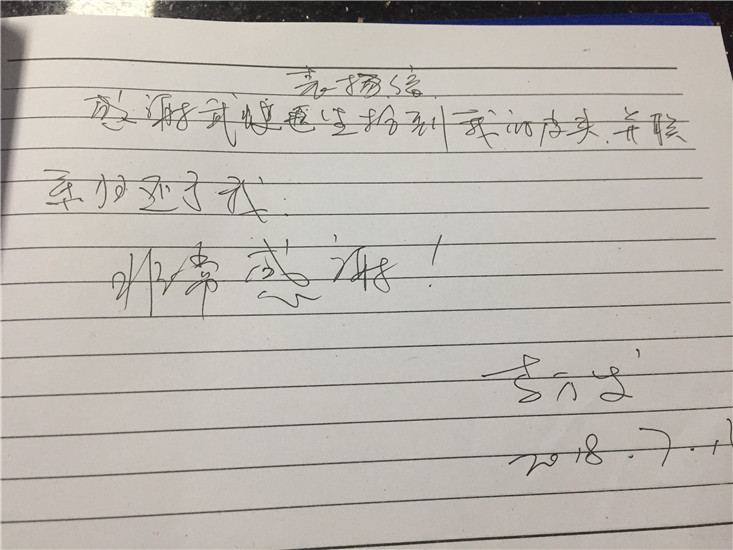 表扬信
感谢武警医生捡到我的皮夹,并联
系归还于我.
非常感谢!
2018.7.1